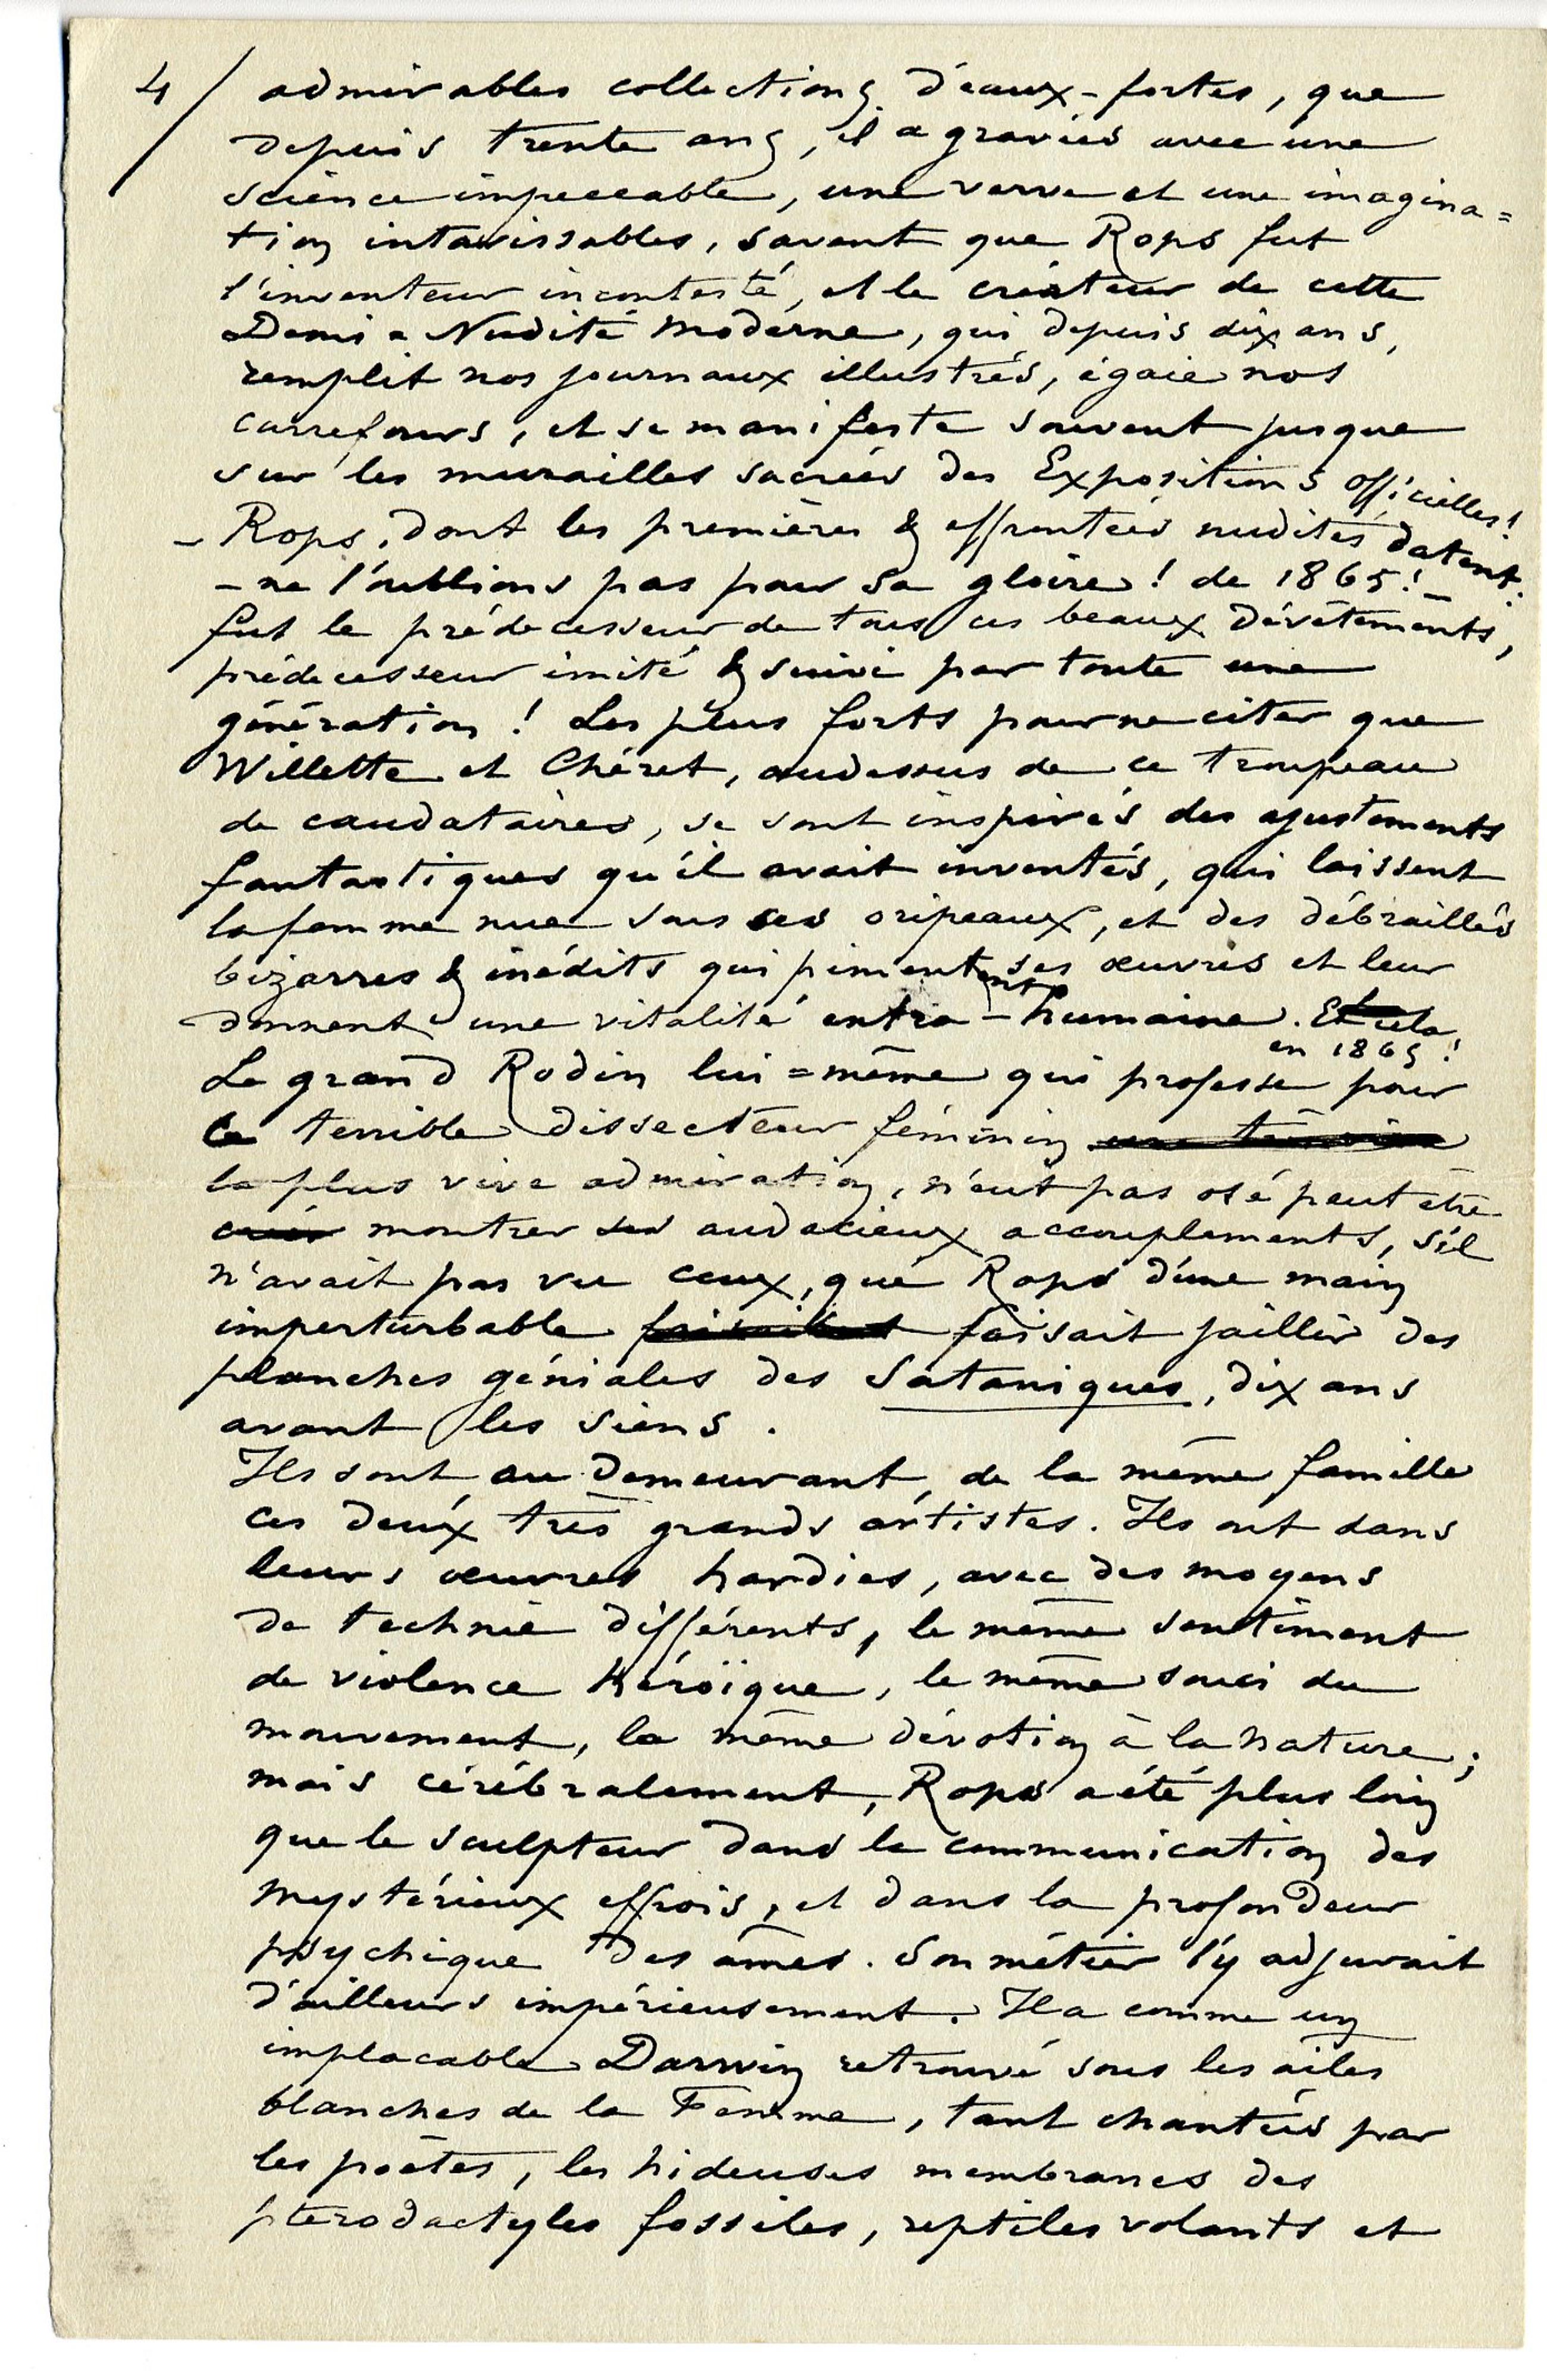 4/ admirables collections d'eaux-fortes, que
depuis trente ans, il a gravées avec une
science impeccable, une verve et une imagina=
tion intarissables, savent que Rops fut
l'inventeur incontesté, et le créateur de cette
Demi=Nudité moderne, qui depuis dix ans,
remplit nos journaux illustrés, égaie nos
carrefours, et se manifeste souvent jusque
sur les murailles sacrées des Expositions officielles!
– Rops, dont les premières & effrontées nudités datent:
– ne l'oublions pas pour sa gloire! de 1865! –
fut le prédecesseur de tous ces beaux dévêtements,
prédecesseur imité & suivi par toute une
génération! Les plus forts pour ne citer que
Willette et Chéret, audessus de ce troupeau
de caudataires, se sont inspirés des ajustements
fantastiques qu'il avait inventés, qui laissent
la femme nue sous ses oripeaux, et des débraillés
bizarres & inédits qui pimentent ses œuvres et leur
donnent une vitalité extra-humaine. Et cela
en 1865!
Le grand Rodin lui=même qui professe pour
ce terrible dissecteur féminin
la plus vive admiration, n'eut pas osé peut être
créer montrer ses audacieux accouplements, s'il
n'avait pas vu ceux, que Rops d'une main
imperturbable faisait jaillir des
planches géniales des Sataniques, dix ans
avant les siens.
Ils sont, au demeurant, de la même famille
ces deux très grands artistes. Ils ont dans
leurs œuvres hardies, avec des moyens
de technie différents, le même sentiment
de violence héroïque, le même souci du
mouvement, la même dévotion à la nature;
mais cérébralement, Rops a été plus loin
que le sculpteur dans la communication des
mystérieux effrois, et dans la profondeur
psychique des âmes. Son métier l'y adjurait
d'ailleurs impérieusement. Il a comme un
implacable Darwin retrouvé sous les ailes
blanches de la Femme, tant chantées par
les poètes, les hideuses membranes des
ptérodactyles fossiles, reptiles volants et